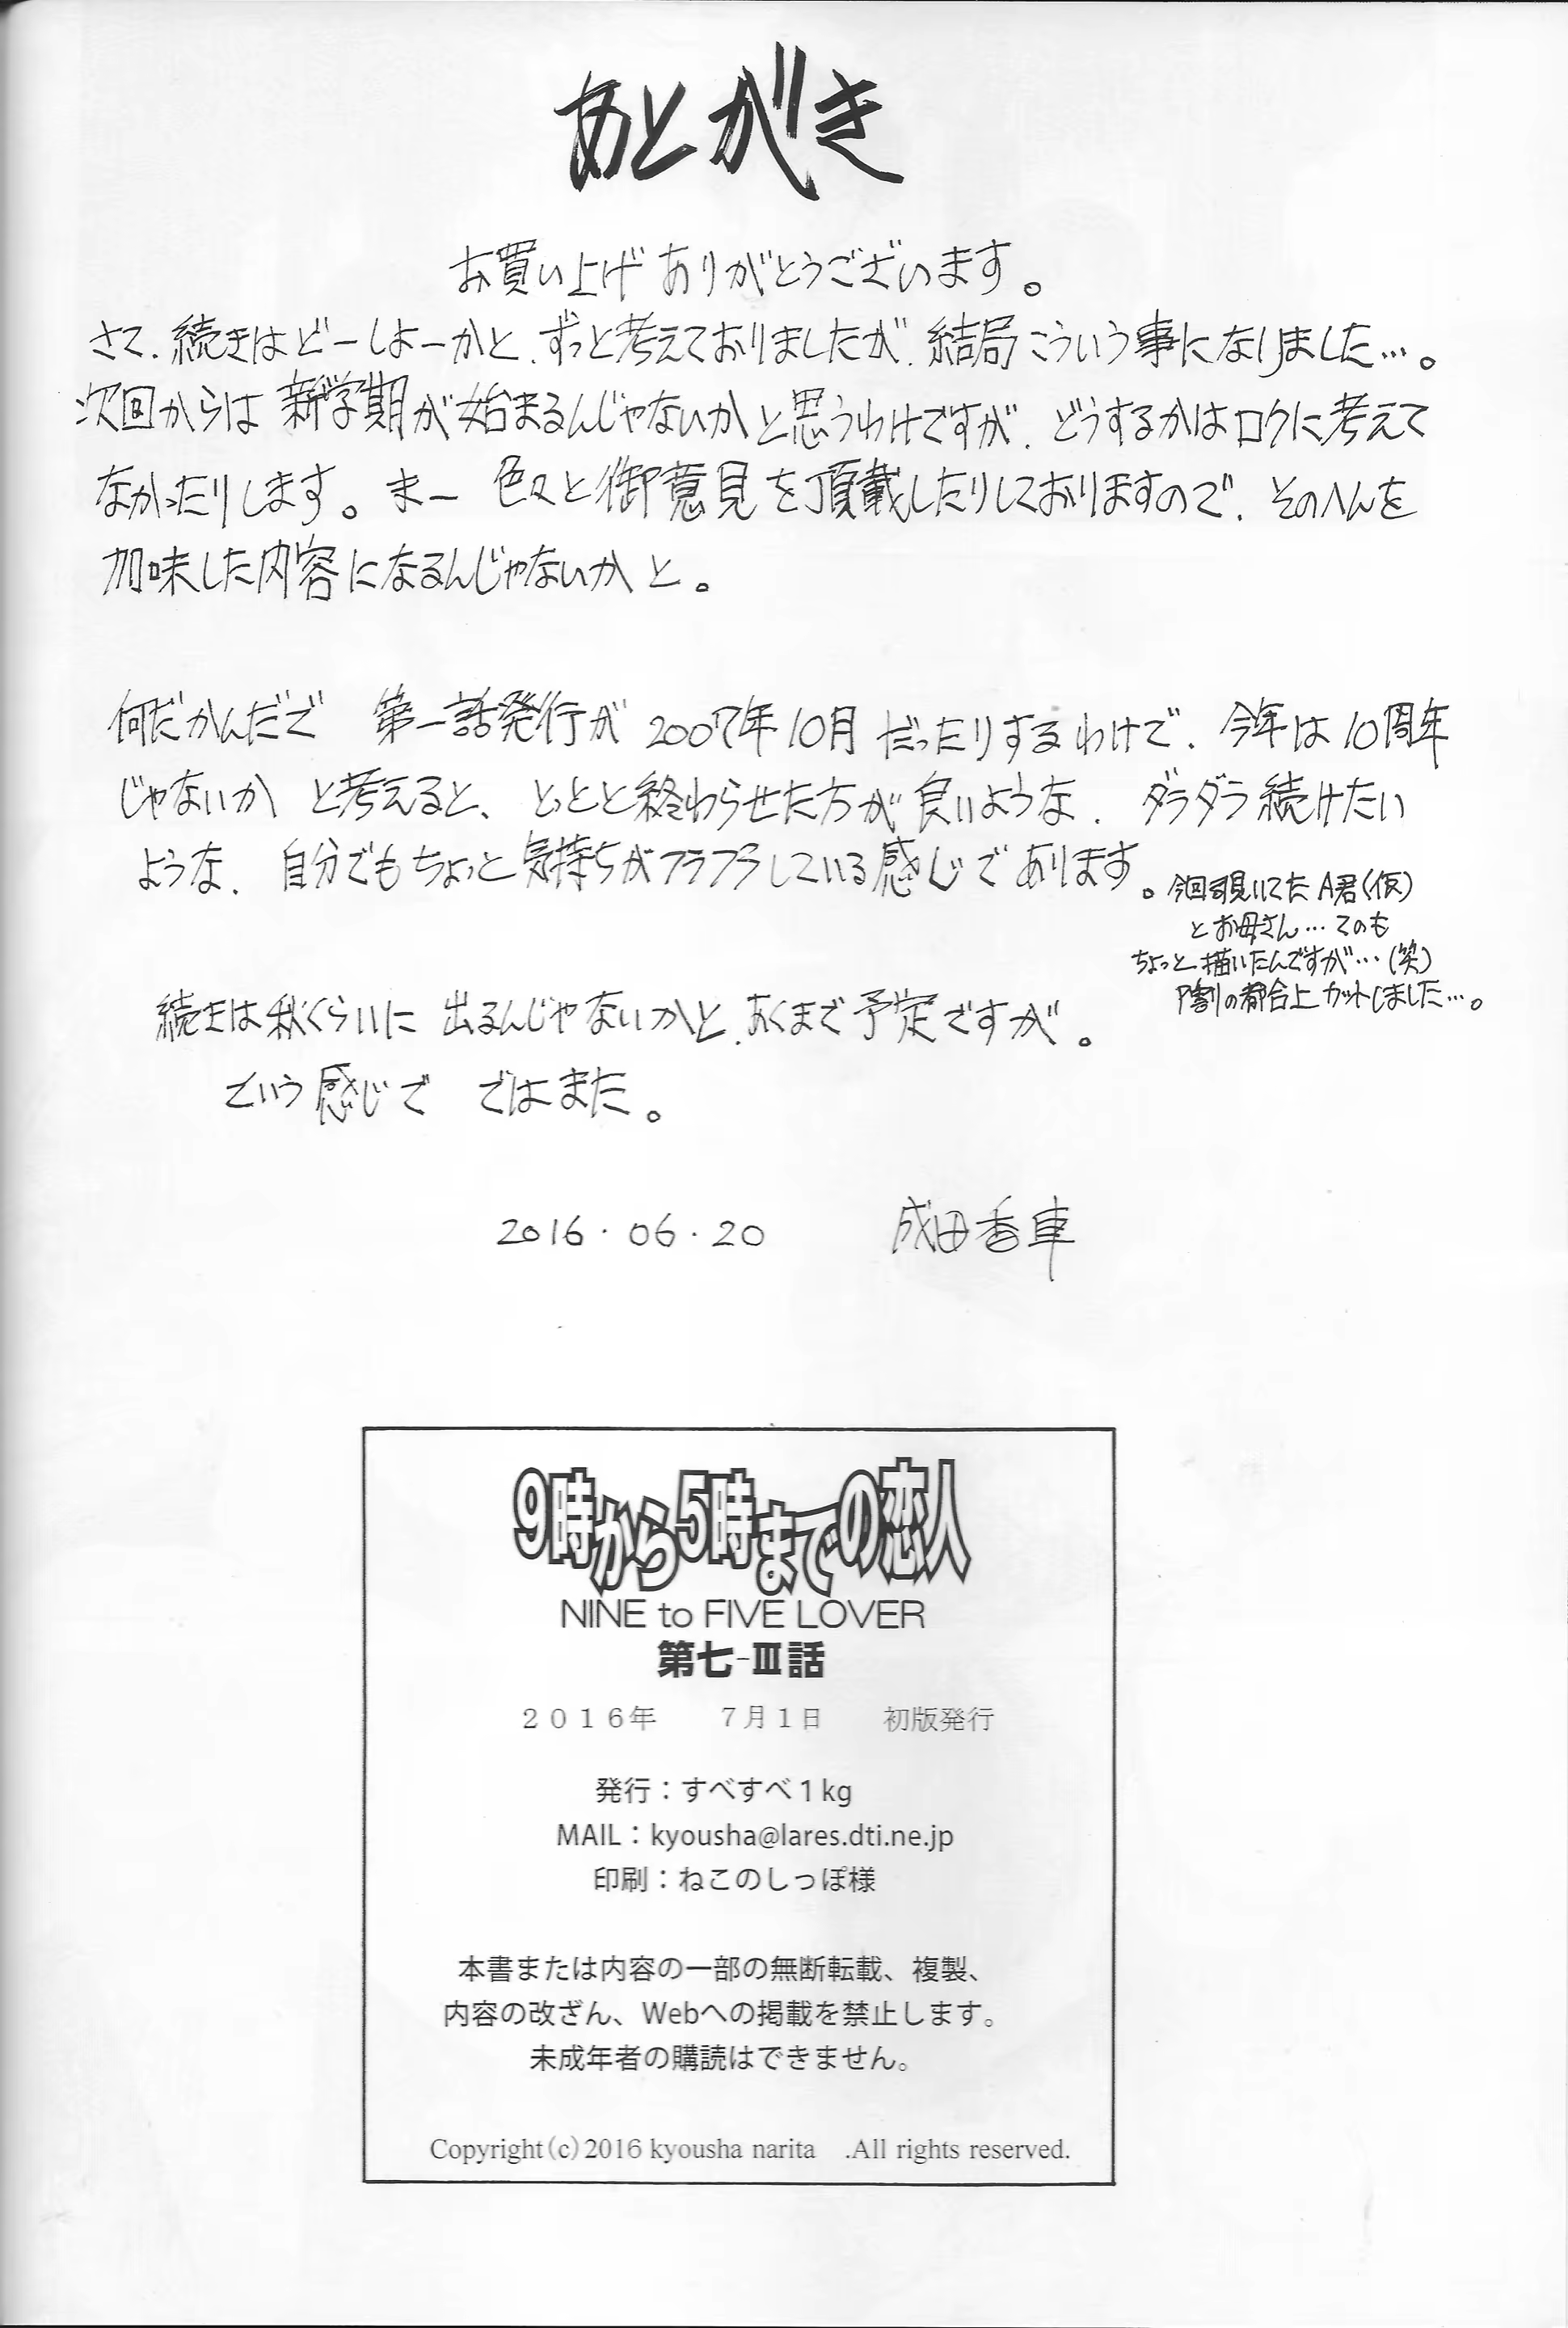 あとがき
お買い上げ ありがとうございます。
さて、続きはどーしよーかと、ずっと考えておりましたが、結局こういう事になりました…。
次回からは新学期が始まるんじゃないかと思うわけですが、どうするかはロクに考えて
なかったりします。まー 色々と御意見を頂戴したりしておりますので、そのへんを
加味した内容になるんじゃないかと。
何だかんだで 第一話発行が 2007年10月 だったりするわけで、今年は10周年
じゃないか と考えると、とっとと終わらせた方が良いような、ダラダラ続けたい
ような、自分でもちょっと気持ちがフラフラしている感じであります。
今回覗いてたA君(仮)
とお母さん…てのも
ちょっと描いたんですが…(笑)
P割の都合上カットしました…。
続きは秋くらいに 出るんじゃないかと、あくまで予定ですが。
という感じで ではまた。
2016・06・20 成田香車
9時から5時までの恋人
NINE to FIVE LOVER
第七-Ⅲ話
２０１６年 ７月１日 初版発行
発行：すべすべ１kg
MAIL：kyousha@lares.dti.ne.jp
印刷：ねこのしっぽ様
本書または内容の一部の無断転載、複製、
内容の改ざん、Webへの掲載を禁止します。
未成年者の購読はできません。
Copyright(c)2016 kyousha narita .All rights reserved.